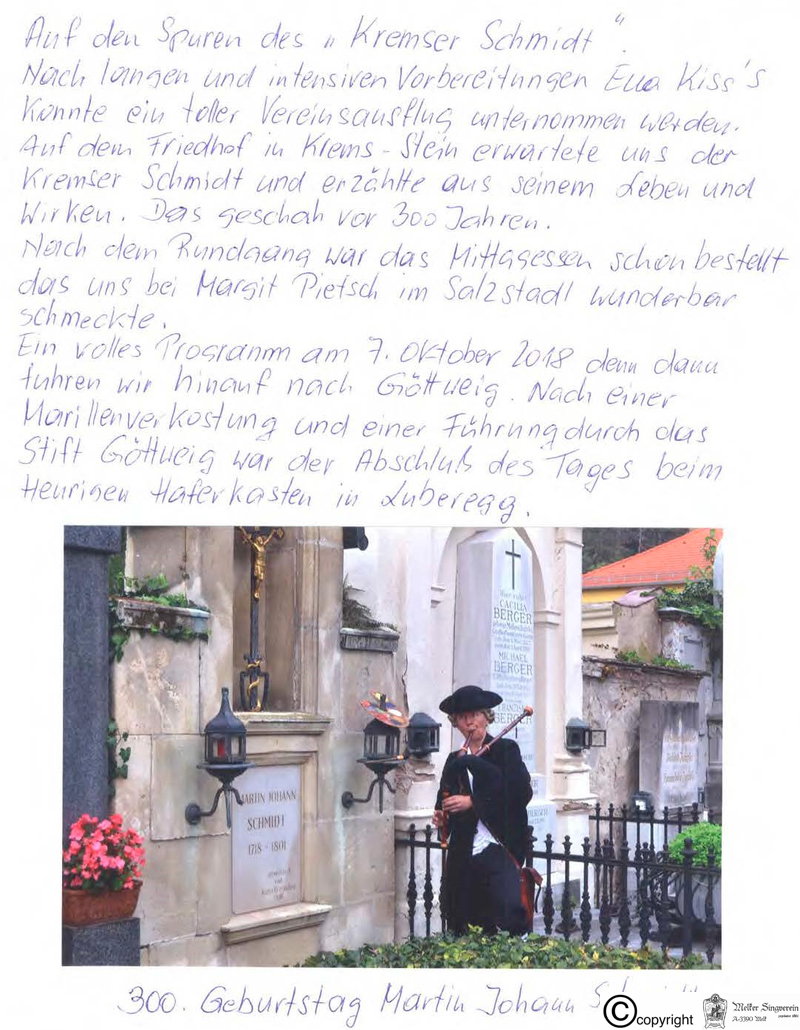 Auf den Spuren des „Kremser Schmidt“.
Nach langen und intensiven Vorbereitungen Eua Kiss's
konnte ein toller Vereinsausflug unternommen werden.
Auf dem Friedhof in Krems-Stein erwartete uns der
Kremser Schmidt und erzählte aus seinem Leben und
Wirken. Das geschah vor 300 Jahren.
Nach dem Rundgang war das Mittagessen schon bestellt
das uns bei Margit Pietsch im Salzstadl wunderbar
schmeckte.
Ein volles Programm am 7. Oktober 2018 denn dann
fuhren wir hinauf nach Göttweig. Nach einer
Marillenverkostung und einer Führung durch das
Stift Göttweig war der Abschluß des Tages beim
Heurigen Haferkasten in Luberegg.
Hier ruhen
CACILIA
BERGER
MICHAEL
BERGER
BERGER
MARTIN JOHANN
SCHMIDT
1718 - 1801
300. Geburtstag Martin Johann
©copyright
Melker Singverein
A-3390 Melk